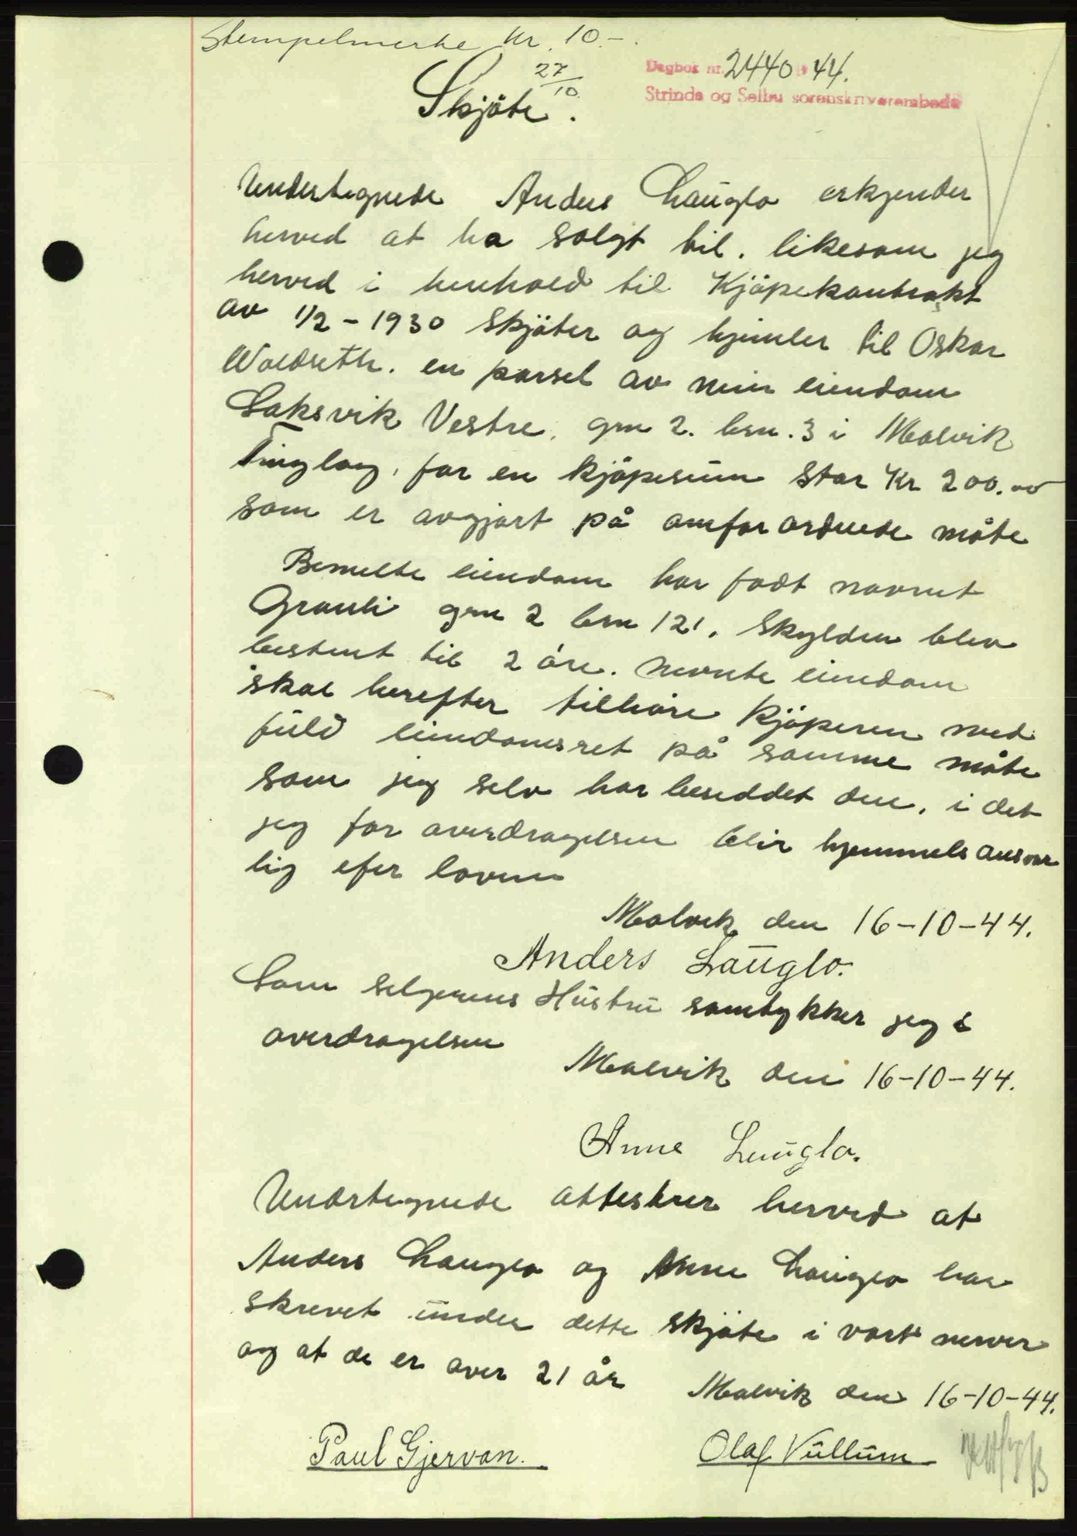 Stempelmerke kr. 10.-
Dagbok nr. 2440 - 44.
Strinda og Selbu sorenskriverembede
27/10
Skjöte.
Undertegnede Anders Lauglo erkjender
herved at ha solgt til. likesom jeg
herved i henhold til Kjöpekontrakt
av 1/2 - 1930 skjöter og hjemler til Oskar
Woldseth. en parsel av min eiendom
Saksvik Vestre. grn 2. brn. 3 i Malvik
Tinglag, for en kjöpesum stor Kr 200.00
som er avgjort på omforordnede måte
Bemelte eiendom har fådt navnet
Granli grn 2 brn 121. Skylden blev
bestemt til 2 öre. Nevnte eiendom
skal herefter tilhöre kjöperen med
fuld eiendomsret på samme måte
som jeg selv har besiddet den, i det
jeg for overdragelsen blir hjemmels ansvar
lig efer loven
Malvik den 16-10-44.
Anders Lauglo.
Som selgerens Hustru samtykker jeg i
overdragelsen
Malvik den 16-10-44.
Anne Lauglo.
Undertegnede attesterer herved at
Anders Lauglo og Anne Lauglo har
skrevet under dette skjöte i vort nerver
og at de er over 21 år
Malvik den 16-10-44.
Paul Gjervan.
Olaf Vullum